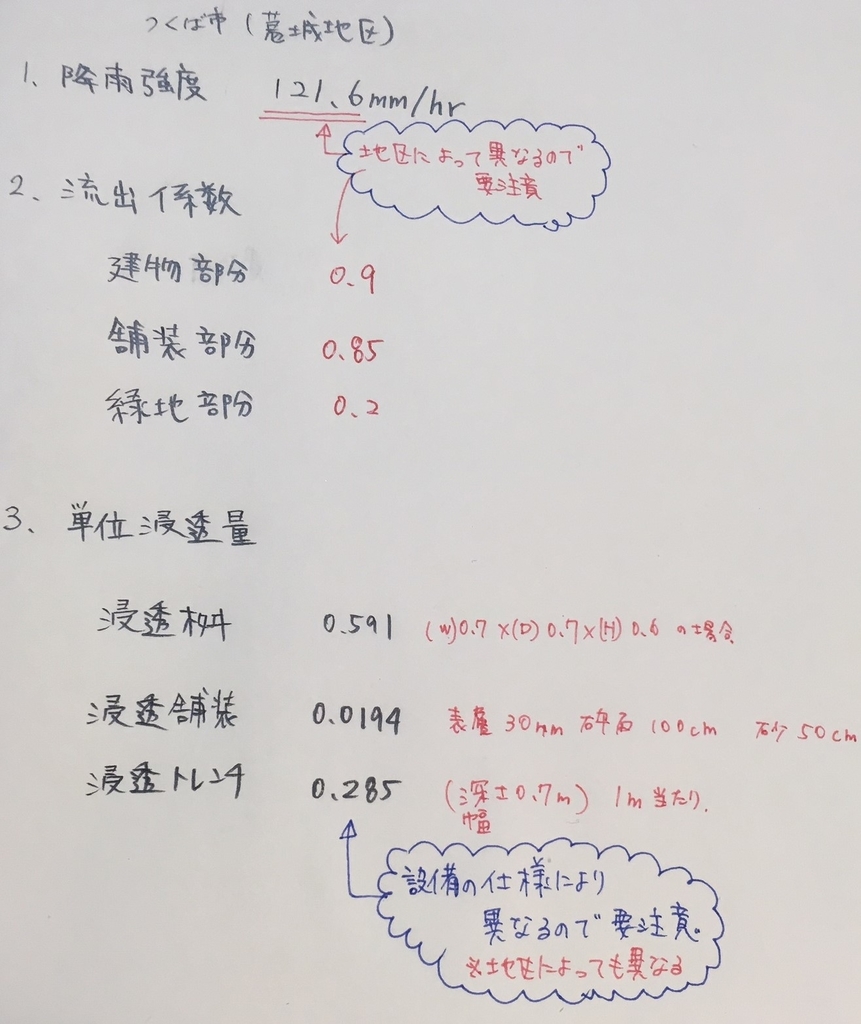 つくば市（葛城地区）
1、降雨強度 121.6mm/hr
地区によって異なるので
要注意
2、流出係数
建物部分 0.9
舗装部分 0.85
緑地部分 0.2
3、単位浸透量
浸透桝 0.591 (W)0.7×(D)0.7×(H)0.6の場合
浸透舗装 0.0194 表層30mm 砕石100cm 砂50cm
浸透トレンチ 0.285 (深さ0.7m) 1m当たり.
幅
設備の仕様により
異なるので要注意。
※地区によっても異なる